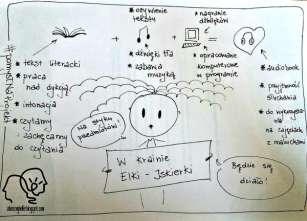 * ożywienie
tekstu
* nagranie
dźwięków
+
+
=
#pomysłnaprojekt
* tekst literacki
* praca
nad dykcją
* intonacja
* czytamy
zachęcamy
do czytania
* dźwięki tła
* zabawa
muzyką
* opracowanie
komputerowe
w programie
* audiobook
* przyjemność
słuchania
* do wykorzystania
na zajęciach
z maluchami
Na styku
przedmiotów!
W Krainie
Elki - Iskierki
Będzie się
działo!